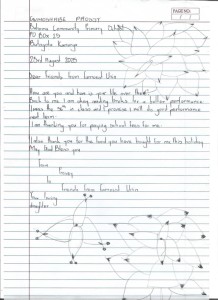 PAGE NO:
GUMOSHABE PROSSY
Community Primary School
PO BOX 19
Butogota Kanungu
23rd August 2009
Dear Friends from Concord Univ
How are you and how is your life over there?
Back to me I am okay sending thanks for a better performance
I was the 5th in class and I promise I will do good performance
next term.
I am thanking you for paying school fees for me.
I also thank you for the food you have bought for me this holiday
May God Bless you
From
Prossy
to
Friends from Concord Univ
Your loving
daughter.